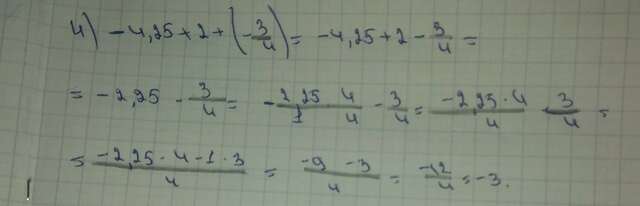 4) -4,25+2+(-3/4)= -4,25+2-3/4=
= -2,25 - 3/4= -2,25/1 4/4 - 3/4= -2,25·4/4 - 3/4 =
= -2,25·4-1·3/4 = -9-3/4 = -12/4=-3.